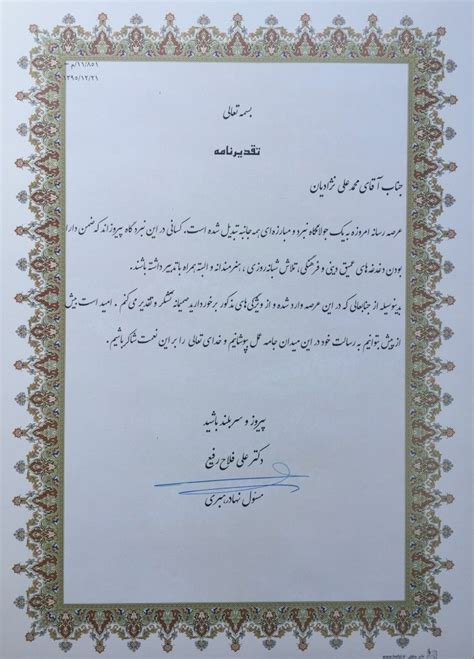 ۱۱/۸۵۱/م
۱۳۹۵/۱۲/۲۱
بسمه تعالی
تقدیرنامه
جناب آقای محمد علی نژادیان
عرصه رسانه امروزه به یک جولانگاه نبرد و مبارزه‌ای همه جانبه تبدیل شده است، کسانی در این نبرد گاه پیروزاند که ضمن دارا
بودن دغدغه‌های عمیق دینی و فرهنگی، تلاش شبانه روزی، هنرمندانه و البته همراه با تدبیر داشته باشند.
بدینوسیله از جنابعالی که در این عرصه وارد شده و از ویژگی های مذکور برخوردارید صمیمانه تشکر و تقدیر می کنم. امید است بیش
از پیش بتوانیم به رسالت خود در این میدان جامه عمل بپوشانیم و خدای تعالی را بر این نعمت شاکر باشیم.
پیروز و سربلند باشید
دکتر علی فلاح رفیع
مسئول نهاد رهبری